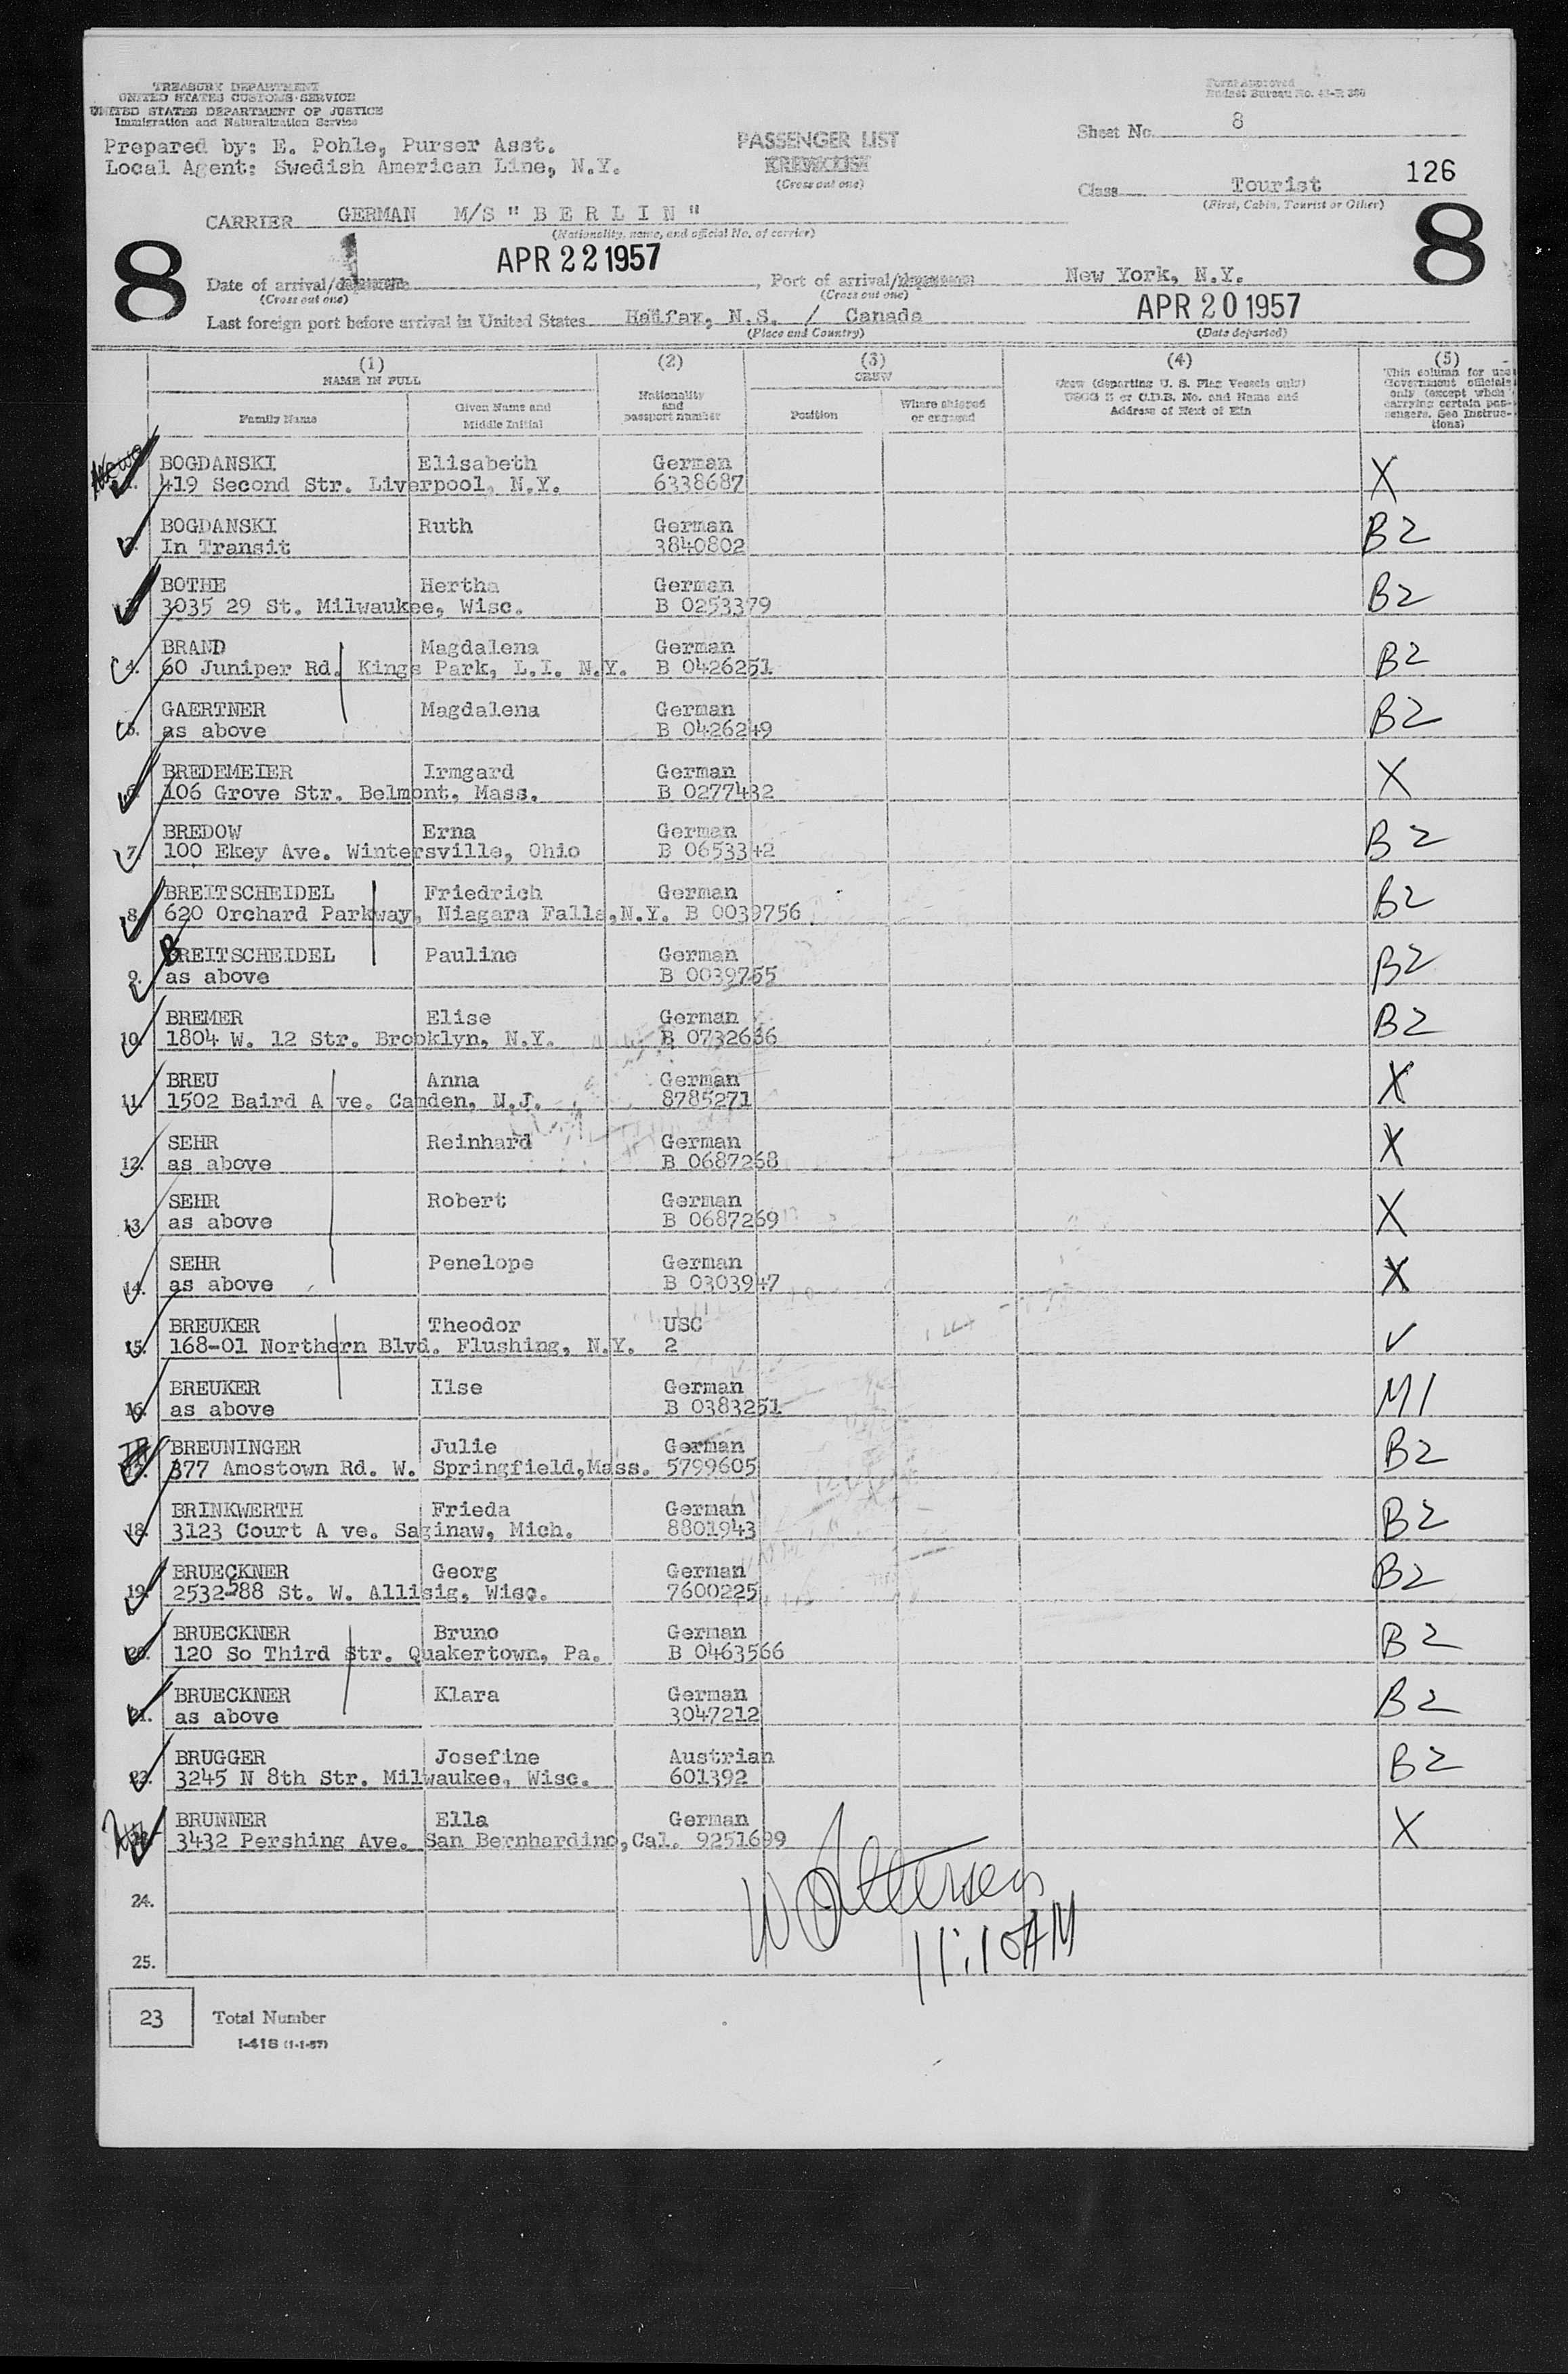 TREASURY DEPARTMENT
UNITED STATES CUSTOMS SERVICE
UNITED STATES DEPARTMENT OF JUSTICE
Immigration and Naturalization Service
Form Approved
Budget Bureau No.
Prepared by: E. Pohle, Purser Asst.
Local Agent: Swedish American Line, N.Y.
PASSENGER LIST
(Cross out one)
Sheet No. 8
126
Class Tourist
(First, Cabin, Tourist or Other)
CARRIER GERMAN M/S "BERLIN"
(Nationality, name, and official No. of carrier)
8
8
Date of arrival/departure APR 22 1957, Port of arrival/departure New York, N.Y.
(Cross out one) (Cross out one)
Last foreign port before arrival in United States Halifax, N.S. / Canada APR 20 1957
(Place and Country) (Date departed)
(1) (2) (3) (4) (5)
NAME IN FULL
Family Name
Given Name and Middle Initial
Nationality and passport number
CREW
Position
Where shipped or engaged
Crew (departing U. S. Flag Vessels only)
Address of Next of Kin
This column for use Government officials only (except when carrying certain passengers. See Instructions)
1. BOGDANSKI Elisabeth German X
419 Second Str. Liverpool, N.Y. 6338687
2. BOGDANSKI Ruth German B2
In Transit 3840802
3. BOTHE Hertha German B2
3035 29 St. Milwaukee, Wisc. B 0253379
4. BRAND Magdalena German B2
60 Juniper Rd. Kings Park, L.I. N.Y. B 0426251
5. GAERTNER Magdalena German B2
as above B 0426249
6. BREDEMEIER Irmgard German X
106 Grove Str. Belmont, Mass. B 0277432
7. BREDOW Erna German B2
100 Ekey Ave. Wintersville, Ohio B 0653342
8. BREITSCHEIDEL Friedrich German B2
620 Orchard Parkway, Niagara Falls,N.Y. B 0039756
9. BREITSCHEIDEL Pauline German B2
as above B 0039755
10. BREMER Elise German B2
1804 W. 12 Str. Brooklyn, N.Y. B 0732636
11. BREU Anna German X
1502 Baird A ve. Camden, N.J. 8785271
12. SEHR Reinhard German X
as above B 0687268
13. SEHR Robert German X
as above B 0687269
14. SEHR Penelope German X
as above B 0303947
15. BREUKER Theodor USC ✓
168-01 Northern Blvd. Flushing, N.Y. 2
16. BREUKER Ilse German M1
as above B 0383251
17. BREUNINGER Julie German B2
377 Amostown Rd. W. Springfield,Mass. 5799605
18. BRINKWERTH Frieda German B2
3123 Court A ve. Saginaw, Mich. 8801943
19. BRUECKNER Georg German B2
2532-588 St. W. Allisig, Wisc. 7600225
20. BRUECKNER Bruno German B2
120 So Third Str. Quakertown, Pa. B 0463566
21. BRUECKNER Klara German B2
as above 3047212
22. BRUGGER Josefine Austrian B2
3245 N 8th Str. Milwaukee, Wisc. 601392
23. BRUNNER Ella German X
3432 Pershing Ave. San Bernhardino,Cal. 9251699
24.
11:10AM
25.
23 Total Number
I-418 (1-1-57)